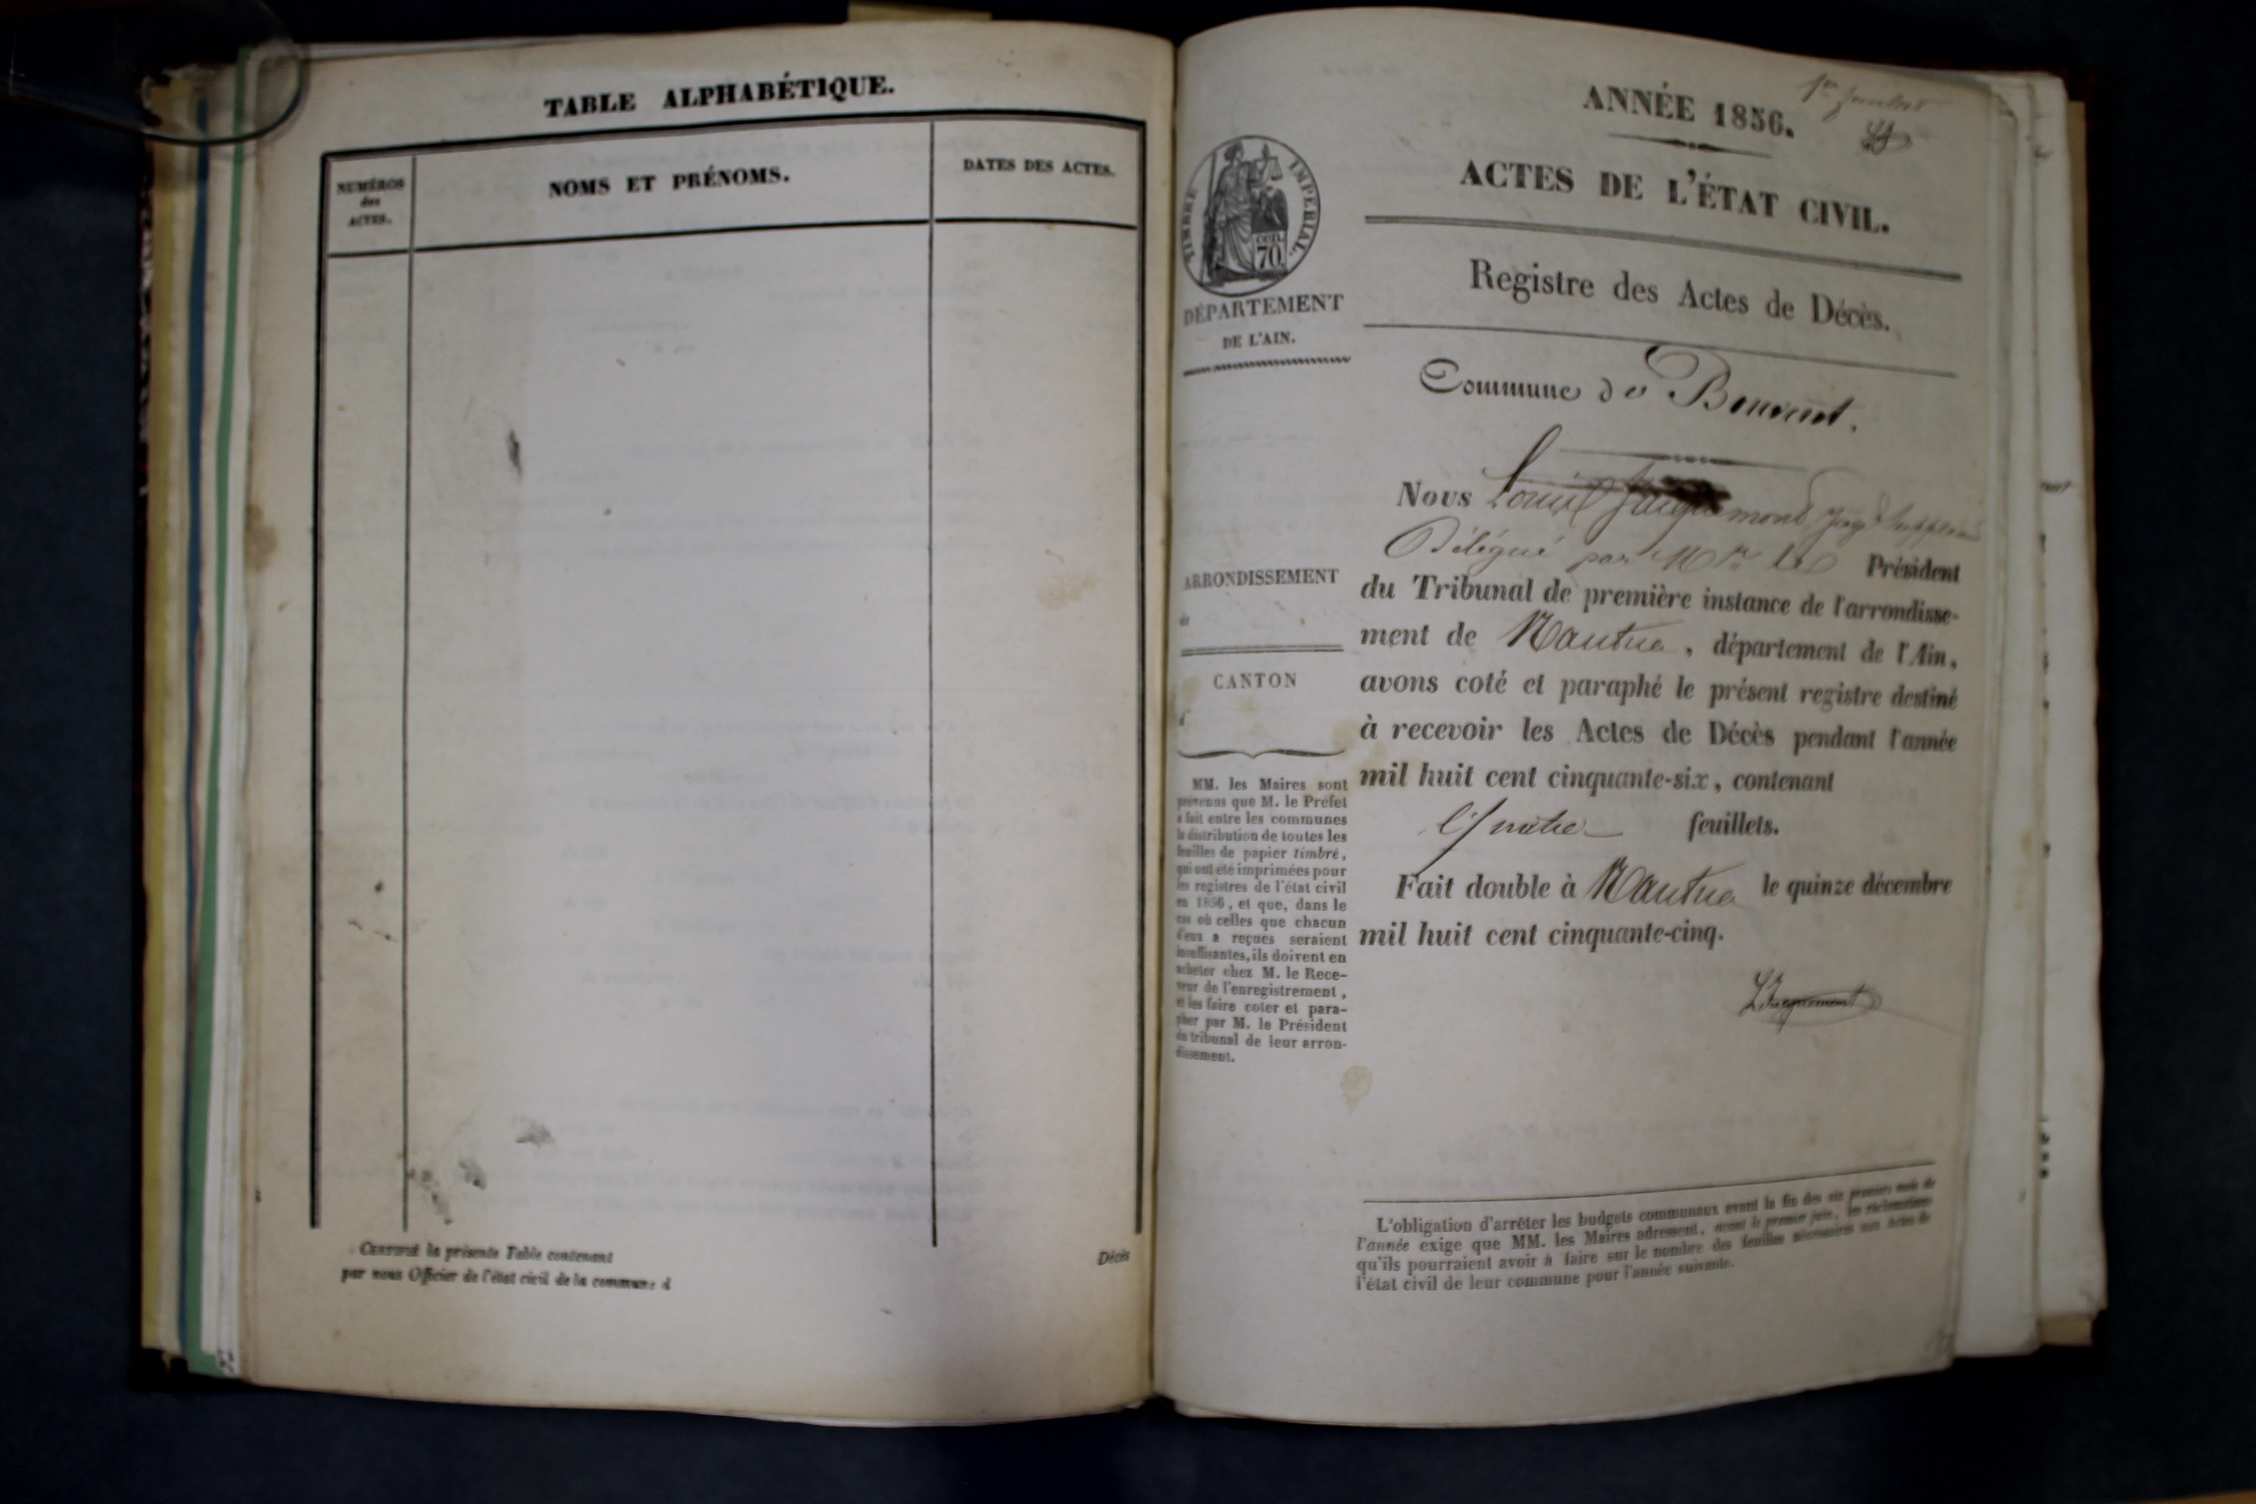 TABLE ALPHABÉTIQUE.
NUMÉROS
des
ACTES.
NOMS ET PRÉNOMS.
DATES DES ACTES.
CERTIFIÉ la présente Table contenant
par nous Officier de l'état civil de la commune d
Décès
1er feuillet
ANNÉE 1856.
ACTES DE L'ÉTAT CIVIL.
TIMBRE IMPÉRIAL.
CEN.
70.
DÉPARTEMENT
DE L'AIN.
Registre des Actes de Décès.
Commune de Bouvent.
Nous Louis Jacquemont Juge Suppléant
Délégué par Mr le Président
du Tribunal de première instance de l'arrondisse-
ment de Nantua, département de l'Ain,
avons coté et paraphé le présent registre destiné
à recevoir les Actes de Décès pendant l'année
mil huit cent cinquante-six, contenant
quatre feuillets.
Fait double à Nantua le quinze décembre
mil huit cent cinquante-cinq.
LJacquemont
ARRONDISSEMENT
de
CANTON
d
MM. les Maires sont
prévenus que M. le Préfet
a fait entre les communes
la distribution de toutes les
feuilles de papier timbré,
qui ont été imprimées pour
les registres de l'état civil
en 1856, et que, dans le
cas où celles que chacun
d'eux a reçues seraient
insuffisantes, ils doivent en
acheter chez M. le Rece-
veur de l'enregistrement,
et les faire coter et para-
pher par M. le Président
du tribunal de leur arron-
dissement.
L'obligation d'arrêter les budgets communaux avant la fin des six premiers mois de
l'année exige que MM. les Maires adressent, avant le premier juin, les réclamations
qu'ils pourraient avoir à faire sur le nombre des feuilles nécessaires aux actes de
l'état civil de leur commune pour l'année suivante.